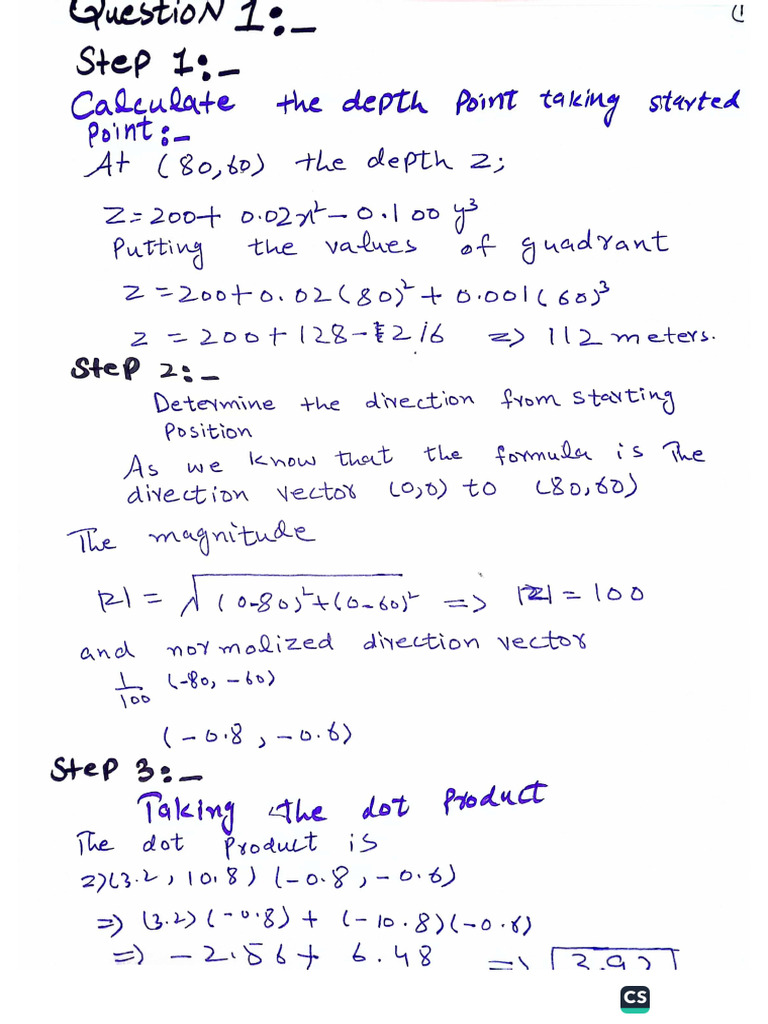 Question 1:-
(1
Step 1:-
Calculate the depth point taking started
point:-
At (80,60) the depth z;
z = 200 + 0.02x² - 0.100y³
Putting the values of quadrant
z = 200 + 0.02(80)² + 0.001(60)³
z = 200 + 128 - 216 => 112 meters.
Step 2:-
Determine the direction from starting
position
As we know that the formula is The
direction vector (0,0) to (80,60)
The magnitude
|z| = √(0-80)²+(0-60)² => |z| = 100
and normolized direction vector
1/100 (-80, -60)
(-0.8, -0.6)
Step 3:-
Taking the dot product
The dot product is
=) (3.2, 10.8) (-0.8, -0.6)
=> (3.2)(-0.8) + (-10.8)(-0.6)
=> -2.56 + 6.48 => 3.92
CS